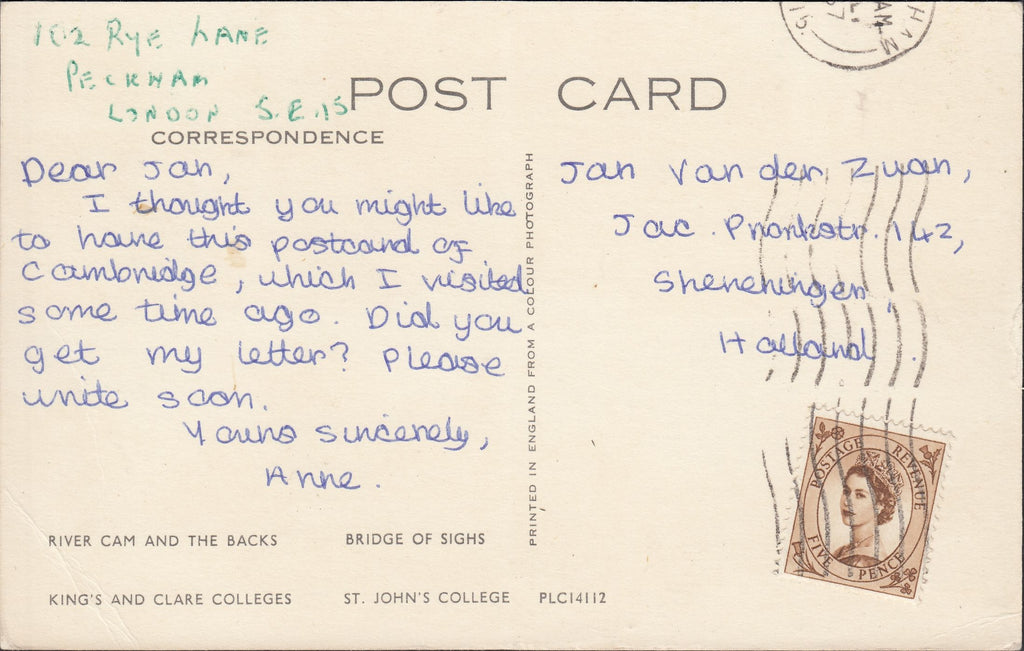 102 RYE LANE
PECKHAM
LONDON S.E.15
POST CARD
CORRESPONDENCE
Dear Jan,
I thought you might like
to have this postcard of
Cambridge, which I visited
some time ago. Did you
get my letter? Please
write soon.
Yours sincerely,
Anne.
PRINTED IN ENGLAND FROM A COLOUR PHOTOGRAPH
Jan van der Zwan,
Jac. Pronkstr. 142,
Sheveningen,
Holland.
HAM
AM
57
S.
POSTAGE REVENUE
FIVE PENCE
RIVER CAM AND THE BACKS BRIDGE OF SIGHS
KING'S AND CLARE COLLEGES ST. JOHN'S COLLEGE PLC14112